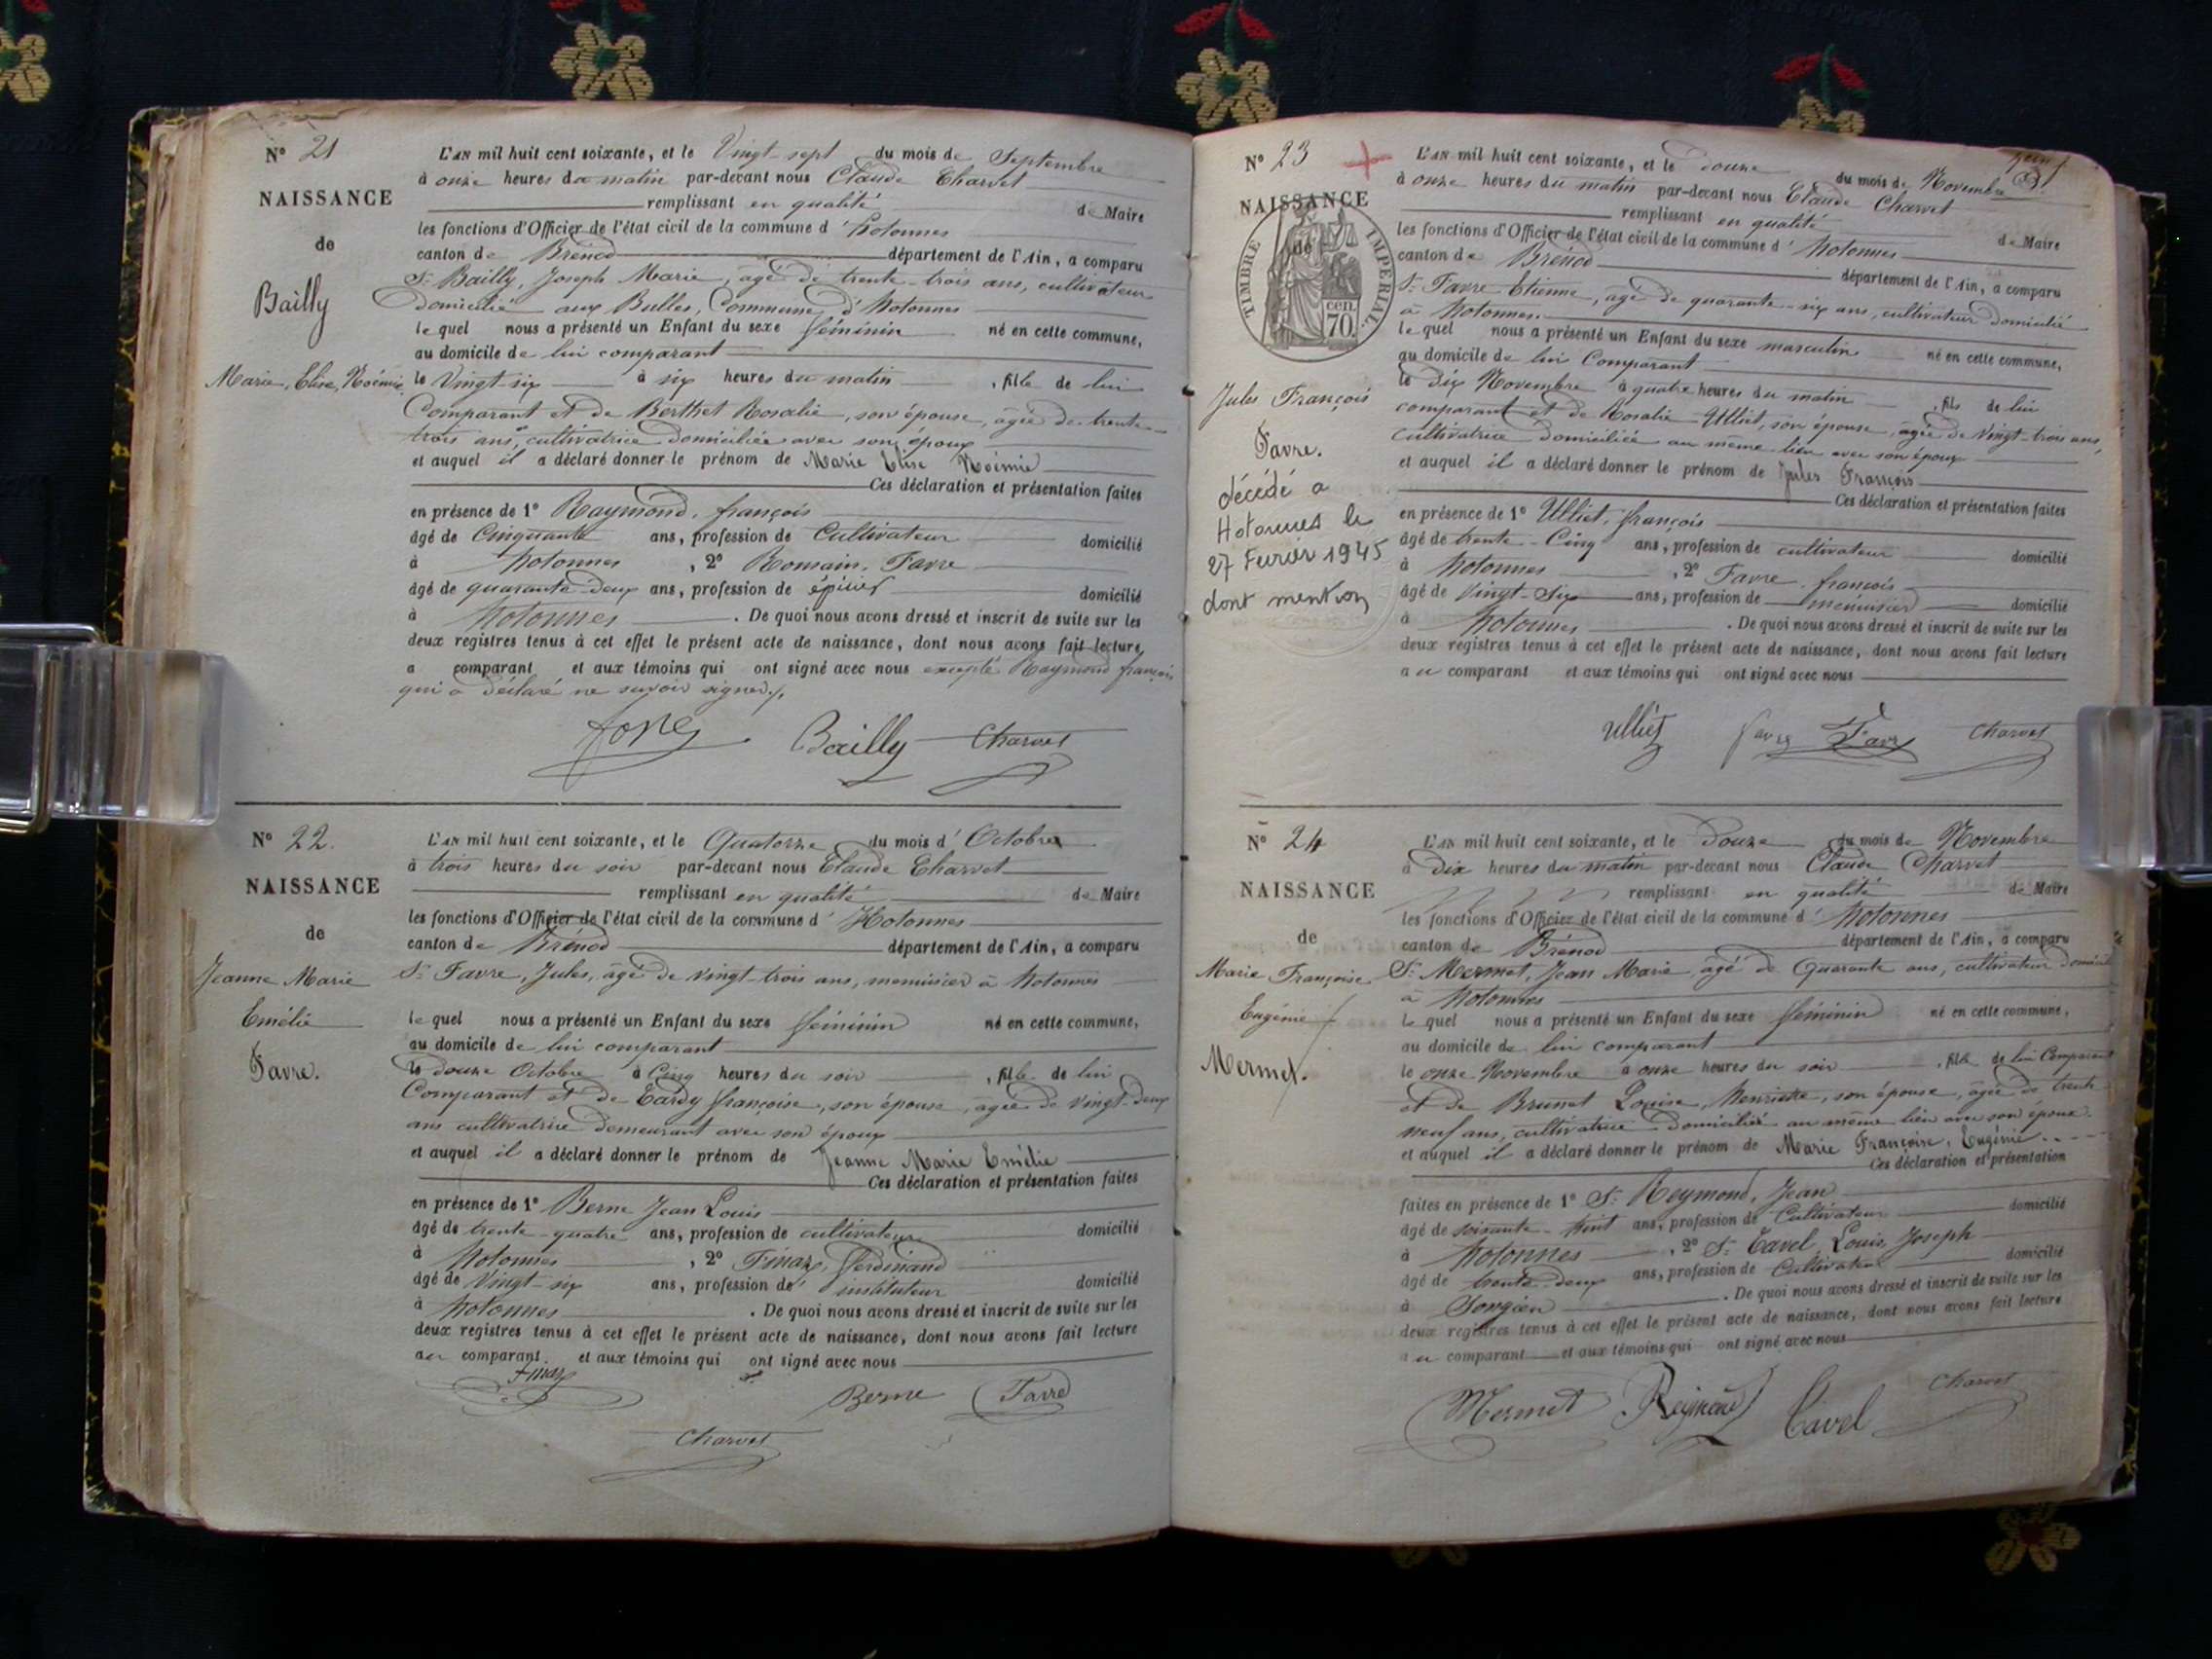 N° 21
NAISSANCE
de
Bailly
Marie, Elise, Noémie
L'AN mil huit cent soixante, et le Vingt-sept du mois de Septembre
à onze heures du matin par-devant nous Claude Charvet
remplissant en qualité de Maire
les fonctions d'Officier de l'état civil de la commune d'hotonnes
canton de Brénod département de l'Ain, a comparu
Sr. Bailly, Joseph Marie, âgé de trente-trois ans, cultivateur
domicilié aux Bulles, Commune d'hotonnes
lequel nous a présenté un Enfant du sexe féminin né en cette commune,
au domicile de lui comparant
le Vingt six à six heures du matin, fille de lui
Comparant et de Berthet Rosalie, son épouse, âgée de trente-
trois ans, cultivatrice domiciliée avec son époux
et auquel il a déclaré donner le prénom de Marie Elise Noémie
Ces déclaration et présentation faites
en présence de 1° Raymond, françois
âgé de Cinquante ans, profession de Cultivateur domicilié
à hotonnes, 2° Romain, Favre
âgé de quarante deux ans, profession de épicier domicilié
à hotonnes. De quoi nous avons dressé et inscrit de suite sur les
deux registres tenus à cet effet le présent acte de naissance, dont nous avons fait lecture
a comparant et aux témoins qui ont signé avec nous excepté Raymond françois
qui a déclaré ne savoir signer.
Bailly Charvet
N° 22.
NAISSANCE
de
Jeanne Marie
Emélie
Favre.
L'AN mil huit cent soixante, et le Quatorze du mois d'Octobre
à trois heures du soir par-devant nous Claude Charvet
remplissant en qualité de Maire
les fonctions d'Officier de l'état civil de la commune d'Hotonnes
canton de Brénod département de l'Ain, a comparu
Sr. Favre, Jules, âgé de vingt-trois ans, menuisier à hotonnes
lequel nous a présenté un Enfant du sexe féminin né en cette commune,
au domicile de lui comparant
le douze Octobre à Cinq heures du soir, fille de lui
Comparant et de Tardy françoise, son épouse, âgée de vingt-deux
ans cultivatrice demeurant avec son époux
et auquel il a déclaré donner le prénom de Jeanne Marie Emélie
Ces déclaration et présentation faites
en présence de 1° Berne Jean Louis
âgé de trente-quatre ans, profession de cultivateur domicilié
à hotonnes, 2° Finaz, ferdinand
âgé de Vingt-six ans, profession de instituteur domicilié
à hotonnes. De quoi nous avons dressé et inscrit de suite sur les
deux registres tenus à cet effet le présent acte de naissance, dont nous avons fait lecture
au comparant et aux témoins qui ont signé avec nous
Finaz Berne Favre
Charvet
N° 23
NAISSANCE
de
TIMBRE IMPERIAL.
70 cen.
Jules François
Favre.
décédé a
Hotonnes le
27 Fevrier 1945
dont mention
L'AN mil huit cent soixante, et le douze du mois de Novembre
à onze heures du matin par-devant nous Claude Charvet
remplissant en qualité de Maire
les fonctions d'Officier de l'état civil de la commune d'hotonnes
canton de Brénod département de l'Ain, a comparu
Sr. Favre Etienne, âgé de quarante-six ans, cultivateur domicilié
à hotonnes.
lequel nous a présenté un Enfant du sexe masculin né en cette commune,
au domicile de lui Comparant
le dix Novembre à quatre heures du matin, fils de lui
comparant et de Rosalie Ulliet, son épouse, âgée de vingt-trois ans,
cultivatrice domiciliée au même lieu avec son époux
et auquel il a déclaré donner le prénom de Jules François
Ces déclaration et présentation faites
en présence de 1° Ulliet, françois
âgé de trente-Cinq ans, profession de cultivateur domicilié
à hotonnes, 2° Favre, françois
âgé de Vingt-Six ans, profession de menuisier domicilié
à hotonnes. De quoi nous avons dressé et inscrit de suite sur les
deux registres tenus à cet effet le présent acte de naissance, dont nous avons fait lecture
au comparant et aux témoins qui ont signé avec nous
Ulliet Favre Favre Charvet
N° 24
NAISSANCE
de
Marie Françoise
Eugénie
Mermet.
L'AN mil huit cent soixante, et le Douze du mois de Novembre
à Dix heures du matin par-devant nous Claude Charvet
remplissant en qualité de Maire
les fonctions d'Officier de l'état civil de la commune d'hotonnes
canton de Brénod département de l'Ain, a comparu
Sr. Mermet, Jean Marie âgé de Quarante ans, cultivateur domicilié
à hotonnes
lequel nous a présenté un Enfant du sexe féminin né en cette commune,
au domicile de lui comparant
le onze Novembre à onze heures du soir, fille de lui Comparant
et de Brunet Louise, Henriette, son épouse, âgée de trente
neuf ans, cultivatrice domiciliée au même lieu avec son époux.
et auquel il a déclaré donner le prénom de Marie Françoise, Eugénie
Ces déclaration et présentation
faites en présence de 1° Sr. Reymond, Jean
âgé de soixante-huit ans, profession de Cultivateur domicilié
à hotonnes, 2° Sr. Tavel Louis Joseph
âgé de trente-deux ans, profession de Cultivateur domicilié
à Songieu. De quoi nous avons dressé et inscrit de suite sur les
deux registres tenus à cet effet le présent acte de naissance, dont nous avons fait lecture
au comparant et aux témoins qui ont signé avec nous
Mermet Reymond Tavel Charvet